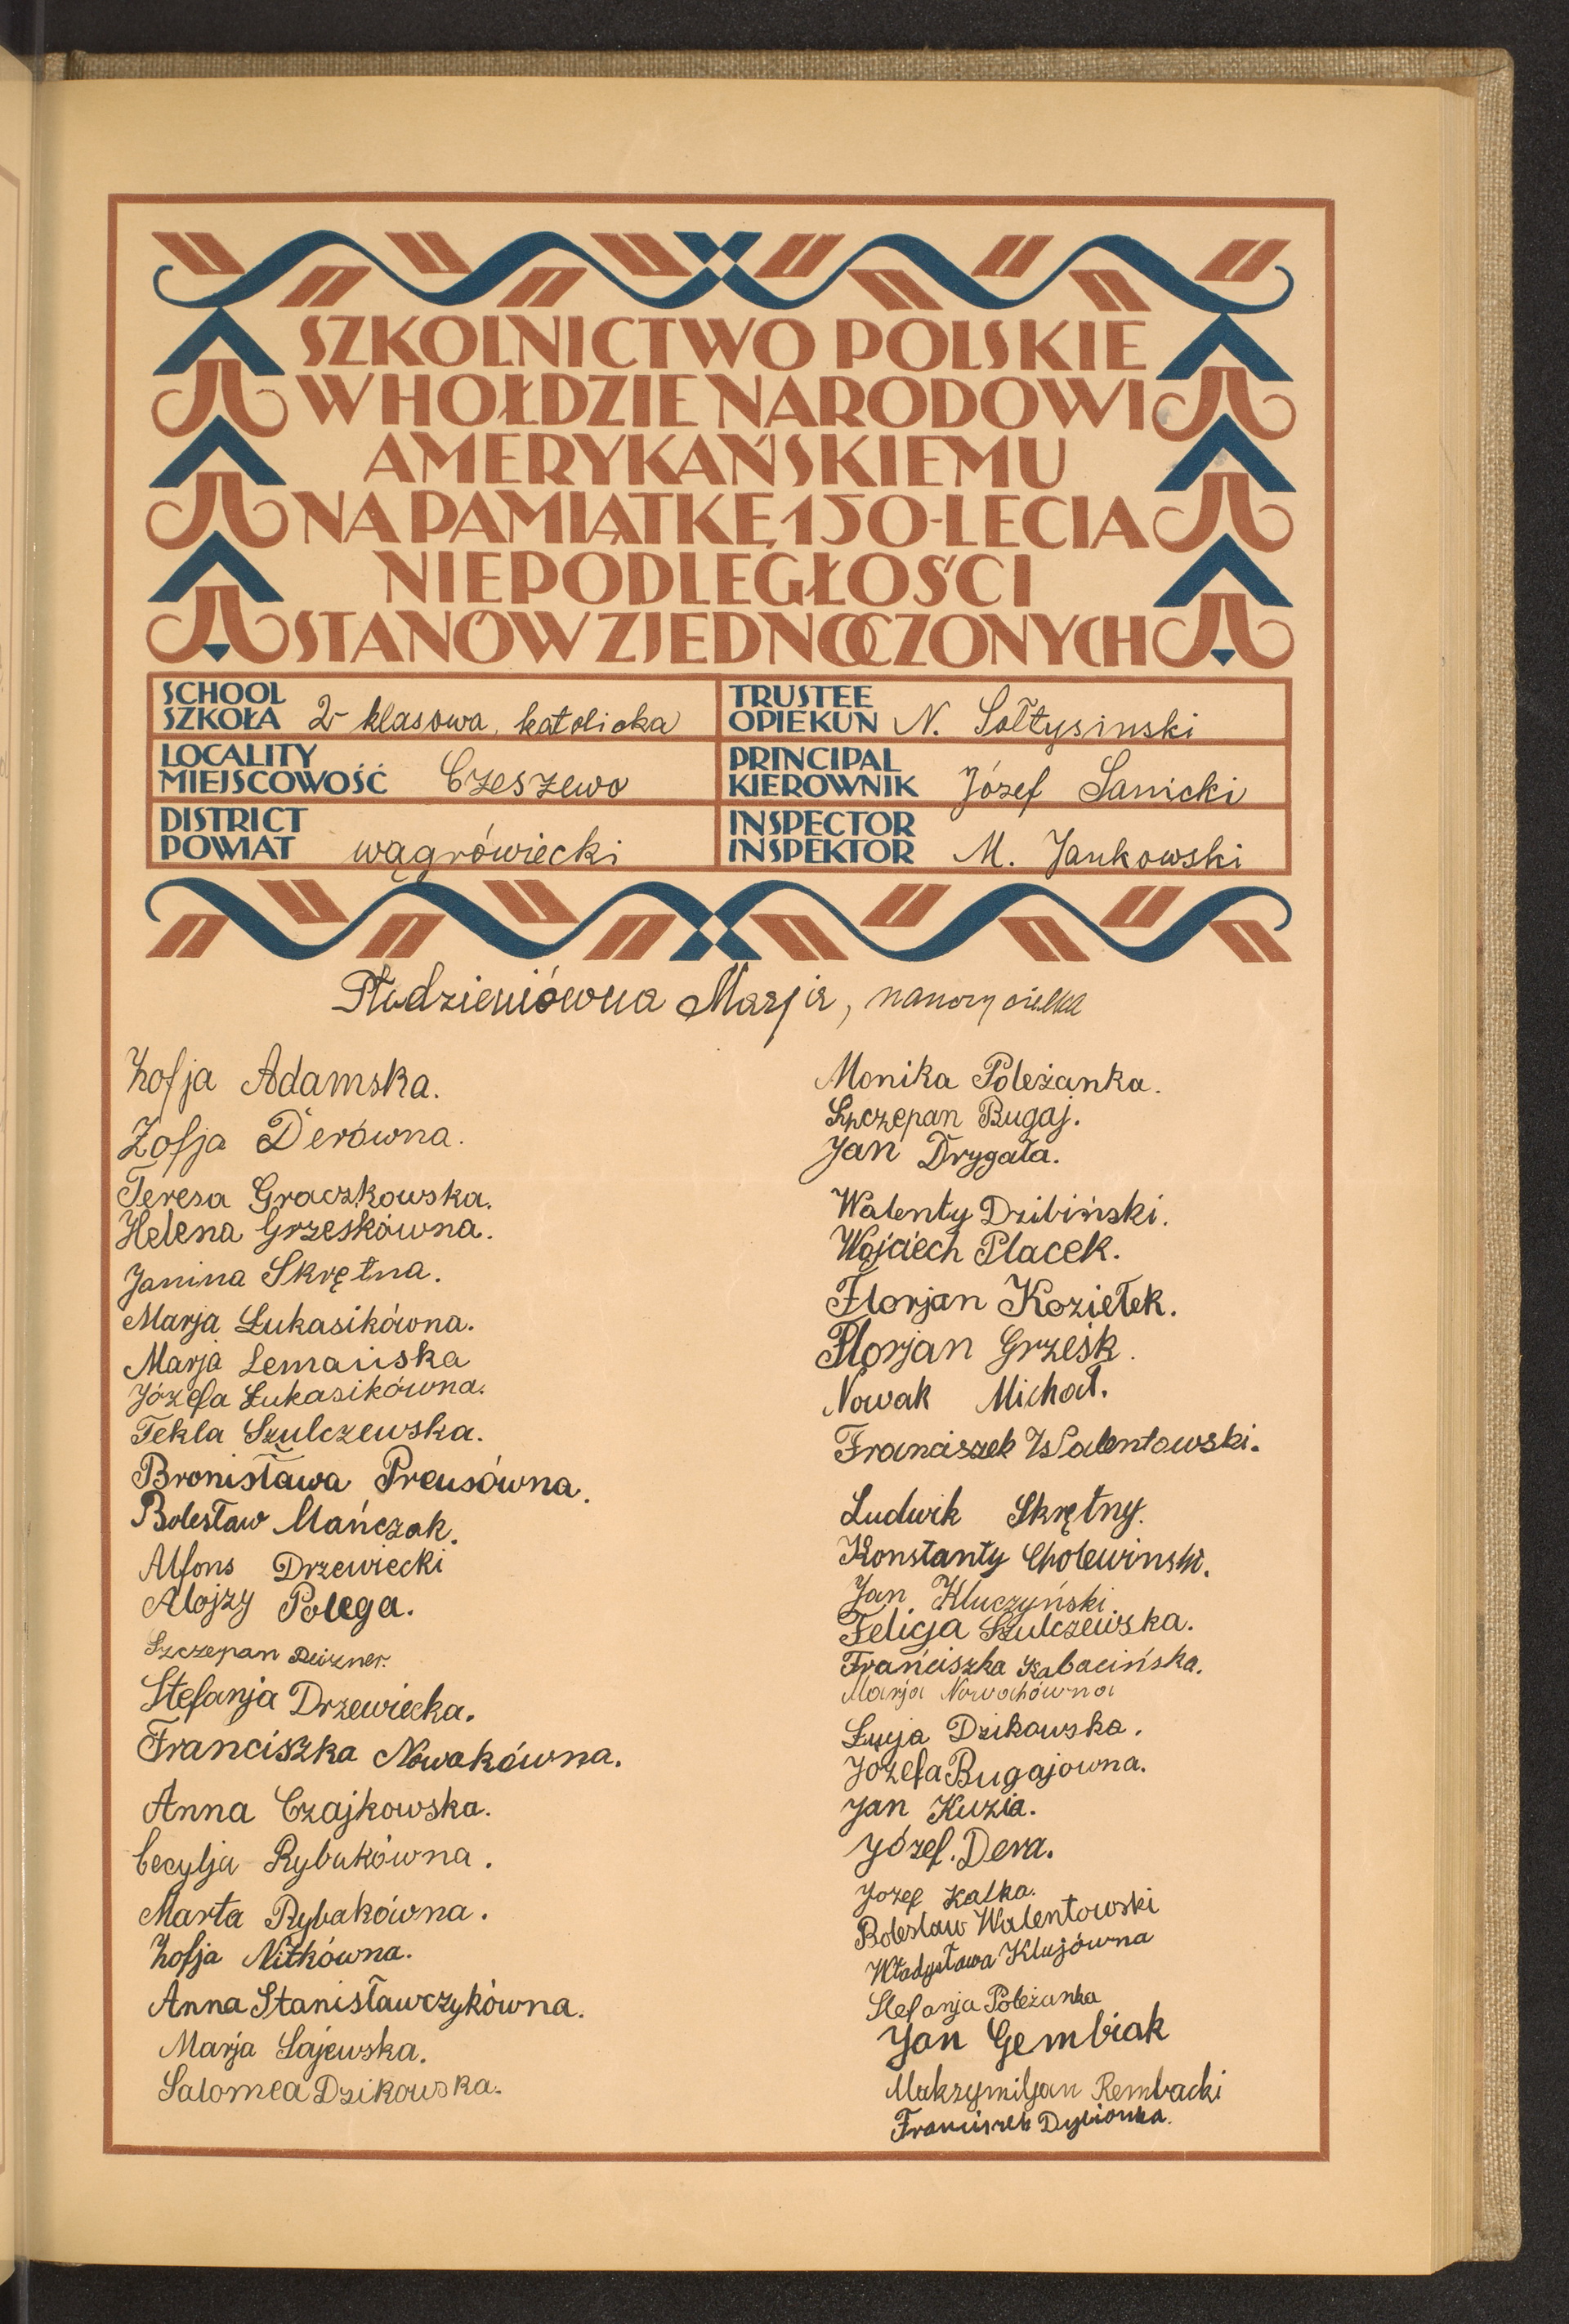 SZKOLNICTWO POLSKIE
W HOŁDZIE NARODOWI
AMERYKAŃSKIEMU
NA PAMIĄTKĘ 150-LECIA
NIEPODLEGŁOŚCI
STANÓW ZJEDNOCZONYCH
SCHOOL
SZKOŁA 2 klasowa, katolicka
TRUSTEE
OPIEKUN N. Sołtysinski
LOCALITY
MIEJSCOWOŚĆ Czeszewo
PRINCIPAL
KIEROWNIK Józef Sanicki
DISTRICT
POWIAT wągrówiecki
INSPECTOR
INSPEKTOR M. Jankowski
Marja, nauczycielka
Zofja Adamska.
Zofja Derówna.
Teresa Graczkowska.
Helena Grzeskówna.
Janina Skrętna.
Marja Łukasikówna.
Marja Lemańska
Józefa Łukasikówna.
Tekla Szulczewska.
Bronisława Preusówna.
Bolesław Mańczak.
Alfons Drzewiecki
Alojzy Polega.
Szczepan
Stefanja Drzewiecka.
Franciszka Nowakówna.
Anna Czajkowska.
Cecylja Rybakówna.
Marta Rybakówna.
Zofja Nitkówna.
Anna Stanisławczykówna.
Marja Sajewska.
Salomea Dzikowska.
Monika Poleżanka.
Szczepan Bugaj.
Jan Drygała.
Walenty Dzibiński.
Wojciech Placek.
Florjan Koziełek.
Florjan Grześk.
Nowak Michał.
Franciszek Walentowski.
Ludwik Skrętny.
Konstanty Cholewinski.
Jan Kluczyński
Felicja Szulczewska.
Franciszka Kabacińska.
Marja Nowakówna
Łucja Dzikowska.
Józefa Bugajowna.
Jan Kuzia.
Józef. Dera.
Jozef Kalka.
Boleslaw Walentowski
Władysława Klujówna
Stefanja Poleżanka
Jan Gembiak
Maksymiljan Rembacki
Franciszek